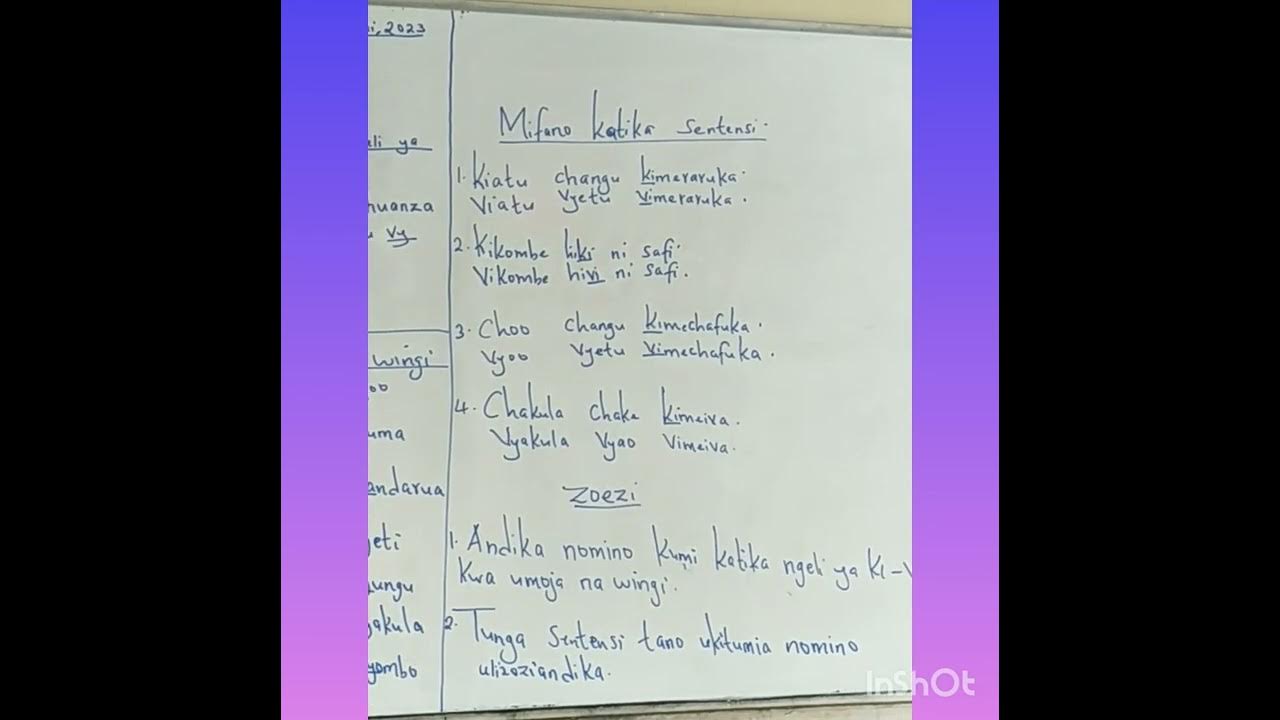 2023
ya
Vy
wingi
Mifano katika sentensi.
1. Kiatu changu kimeraruka.
Viatu vyetu vimeraruka.
2. Kikombe hiki ni safi.
Vikombe hivi ni safi.
3. Choo changu kimechafuka.
Vyoo vyetu vimechafuka.
4. Chakula chake kimeiva.
Vyakula vyao vimeiva.
Zoezi
1. Andika nomino kumi katika ngeli ya KI-V
kwa umoja na wingi.
2. Tunga sentensi tano ukitumia nomino
ulizoziandika.
InShOt